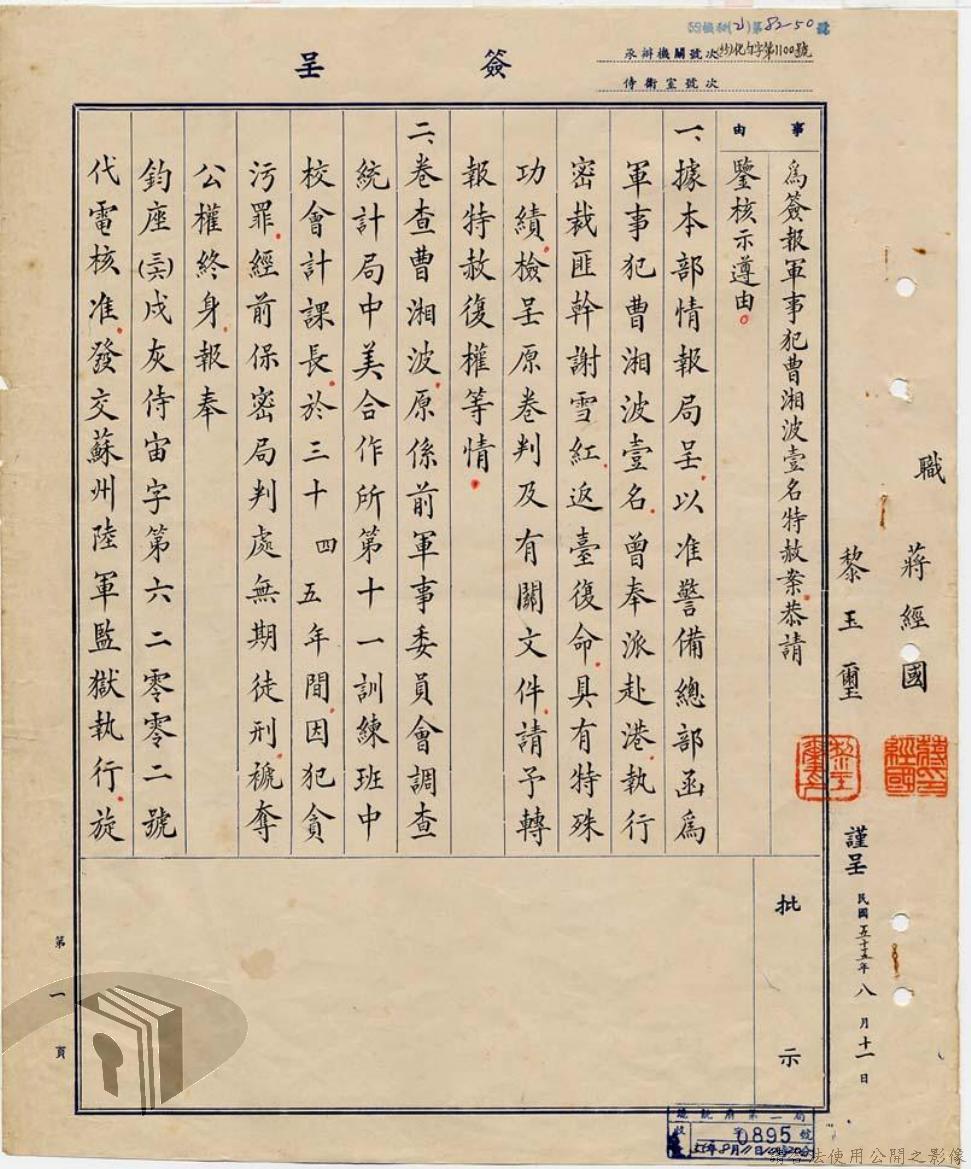 簽呈
承辦機關號次(抄)化勻字第1100號
侍衛室號次
職
蔣經國
黎玉璽
謹呈
民國五十五年八月十一日
事由
為簽報軍事犯曹湘波壹名特赦案恭請
鑒核示遵由。
一、據本部情報局呈、以准警備總部函為
軍事犯曹湘波壹名、曾奉派赴港、執行
密裁匪幹謝雪紅、返臺復命、具有特殊
功績、檢呈原卷判及有關文件、請予轉
報特赦復權等情、
二、卷查曹湘波、原係前軍事委員會調查
統計局中美合作所第十一訓練班中
校會計課長、於三十四五年間、因犯貪
污罪、經前保密局判處無期徒刑、褫奪
公權終身、報奉
鈞座(三六)戍灰侍宙字第六二零零二號
代電核准、發交蘇州陸軍監獄執行、旋
批示
第一頁
總統府第二局
收字0895號
55年8月11日
請合法使用公開之影像